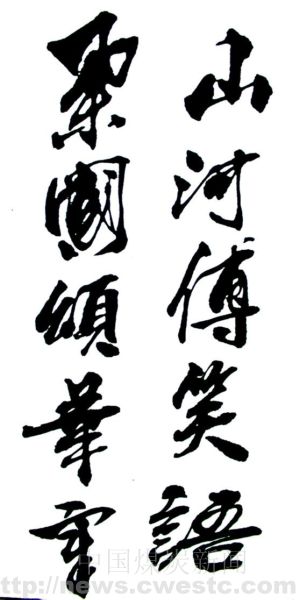 山河傳笑語
國頌華章
中国煤炭新闻
http://news.cwestc.c